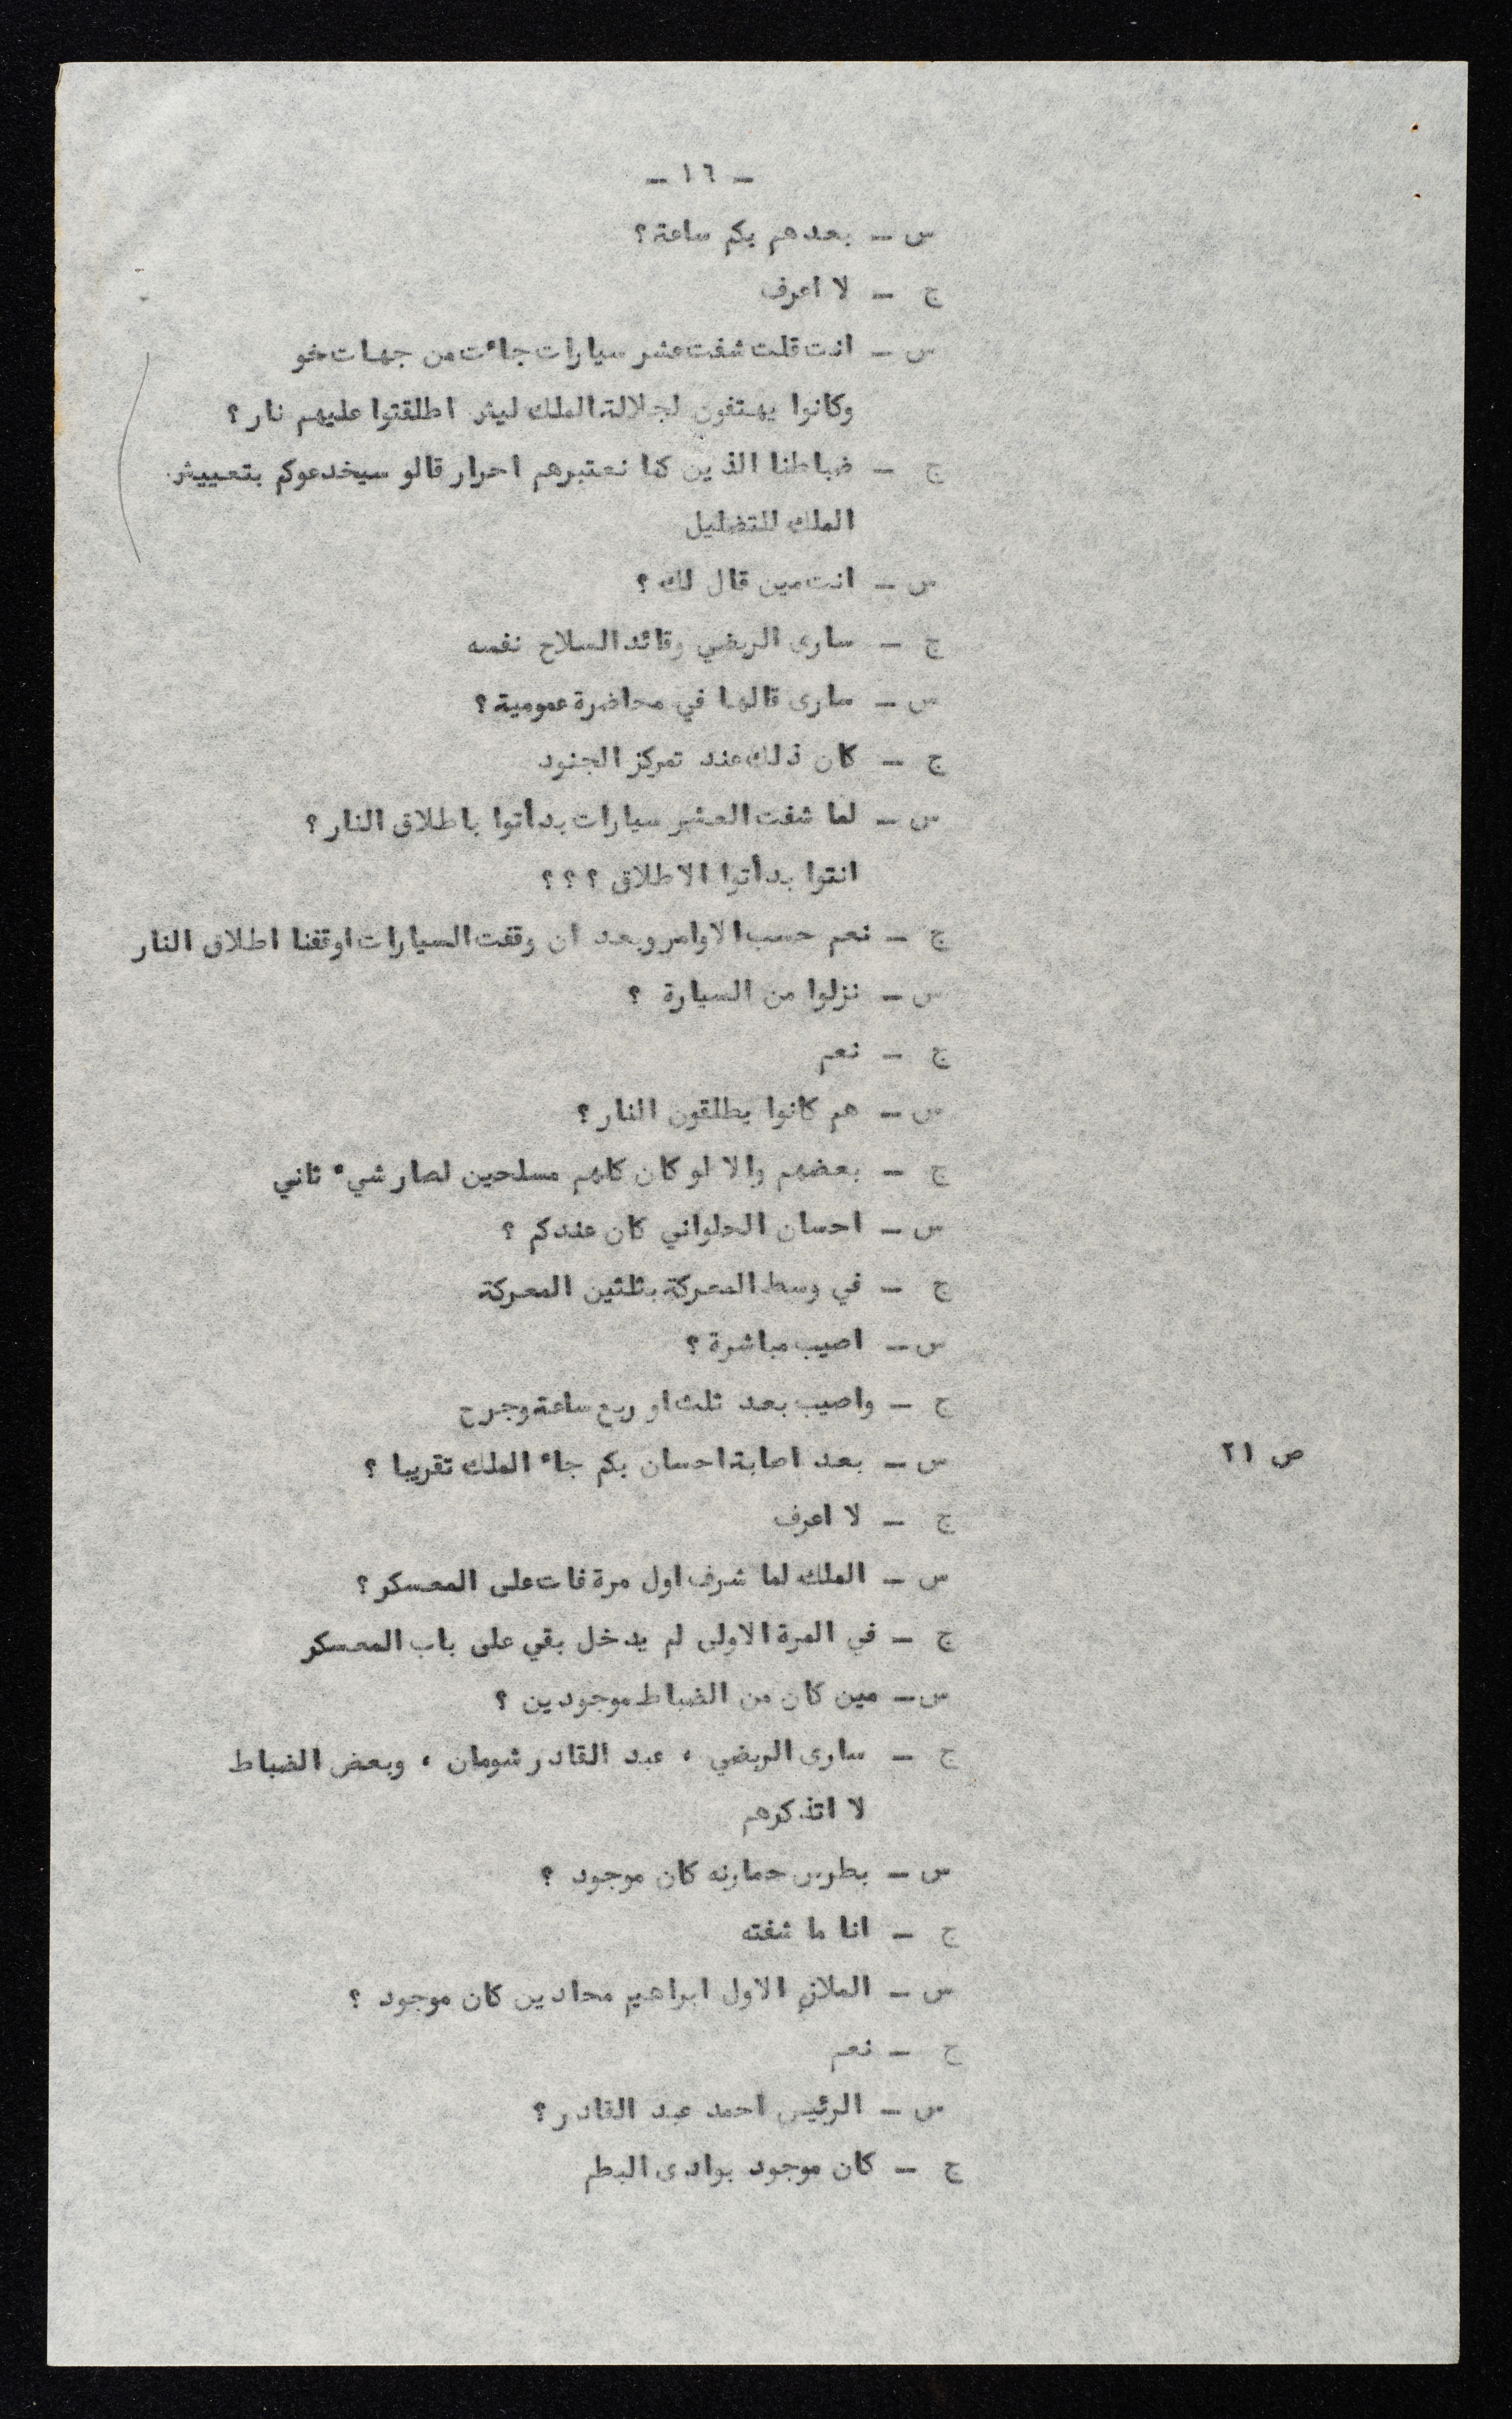 - ١٦ -
س - بعدهم بكم ساعة ؟
ج - لا اعرف
س - انت قلت شفت عشر سيارات جاءت من جهات خو
وكانوا يهتفون لجلالة الملك ليش اطلقتوا عليهم نار ؟
ج - ضباطنا الذين كنا نعتبرهم احرار قالو سيخدعوكم بتعييش
الملك للتضليل
س - انت مين قال لك ؟
ج - سارى الربضي وقائد السلاح نفسه
س - سارى قالها في محاضرة عمومية ؟
ج - كان ذلك عند تمركز الجنود
س - لما شفت العشر سيارات بدأتوا باطلاق النار ؟
انتوا بدأتوا الاطلاق ؟ ؟ ؟
ج - نعم حسب الاوامر وبعد ان وقفت السيارات اوقفنا اطلاق النار
س - نزلوا من السيارة ؟
ج - نعم
س - هم كانوا يطلقون النار ؟
ج - بعضهم والا لو كان كلهم مسلحين لصار شيء ثاني
س - احسان الحلواني كان عندكم ؟
ج - في وسط المعركة بثلثين المعركة
س - اصيب مباشرة ؟
ج - واصيب بعد ثلث او ربع ساعة وجرح
ص ٢١ س - بعد اصابة احسان بكم جاء الملك تقريبا ؟
ج - لا اعرف
س - الملك لما شرف اول مرة فات على المعسكر ؟
ج - في المرة الاولى لم يدخل بقي على باب المعسكر
س - مين كان من الضباط موجودين ؟
ج - سارى الربضي ، عبد القادر شومان ، وبعض الضباط
لا اتذكرهم
س - بطرس حمارنه كان موجود ؟
ج - انا ما شفته
س - الملازم الاول ابراهيم محادين كان موجود ؟
ج - نعم
س - الرئيس احمد عبد القادر ؟
ج - كان موجود بوادى البطم